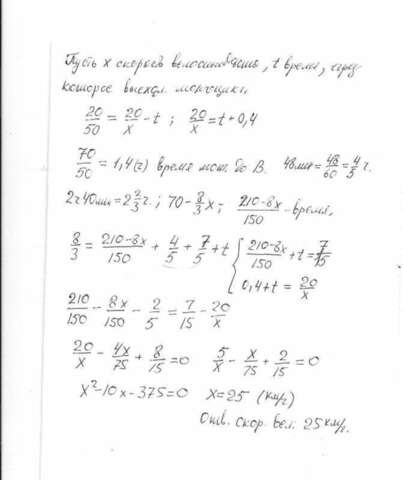 Пусть x скорость велосипедиста, t время, через
которое выехал мотоцикл.
20/50 = 20/x - t ; 20/x = t + 0,4
70/50 = 1,4(ч) время мот. до В. 48мин = 48/60 = 4/5 ч.
2ч40мин = 2 2/3 ч. ; 70 - 8/3 x ; (210-8x)/150 - время.
8/3 = (210-8x)/150 + 4/5 + 7/5 + t { (210-8x)/150 + t = 7/15
0,4 + t = 20/x
210/150 - 8x/150 - 2/5 = 7/15 - 20/x
20/x - 4x/75 + 8/15 = 0 5/x - x/75 + 2/15 = 0
x² - 10x - 375 = 0 x = 25 (км/ч)
Отв. скор. вел. 25 км/ч.